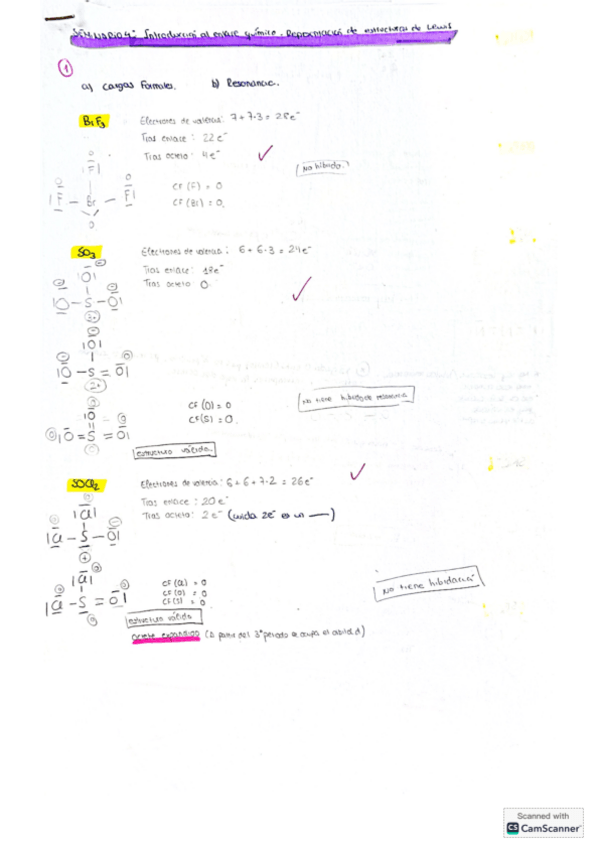 SEMINARIO 4: Introducción al enlace químico. Representación de estructuras de Lewis
①
a) Cargas Formales. b) Resonancia.
BrF3 Electrones de valencia: 7 + 7·3 = 28e-
Tras enlace: 22e-
Tras octeto: 4e-
No híbrido.
CF (F) = 0
CF (Br) = 0.
SO3 Electrones de valencia: 6 + 6·3 = 24e-
Tras enlace: 18e-
Tras octeto 0
CF (O) = 0
CF(S) = 0.
No tiene híbrido de resonancia
estructura válida.
SOCl2 Electrones de valencia: 6 + 6 + 7·2 = 26e-
Tras enlace: 20e-
Tras octeto: 2e- (cada 2e- es un —)
CF (Cl) = 0
CF (O) = 0
CF (S) = 0
No tiene hibridación
estructura válida
Octeto expandido (a partir del 3º periodo se ocupa el orbital d)
Scanned with
CS CamScanner